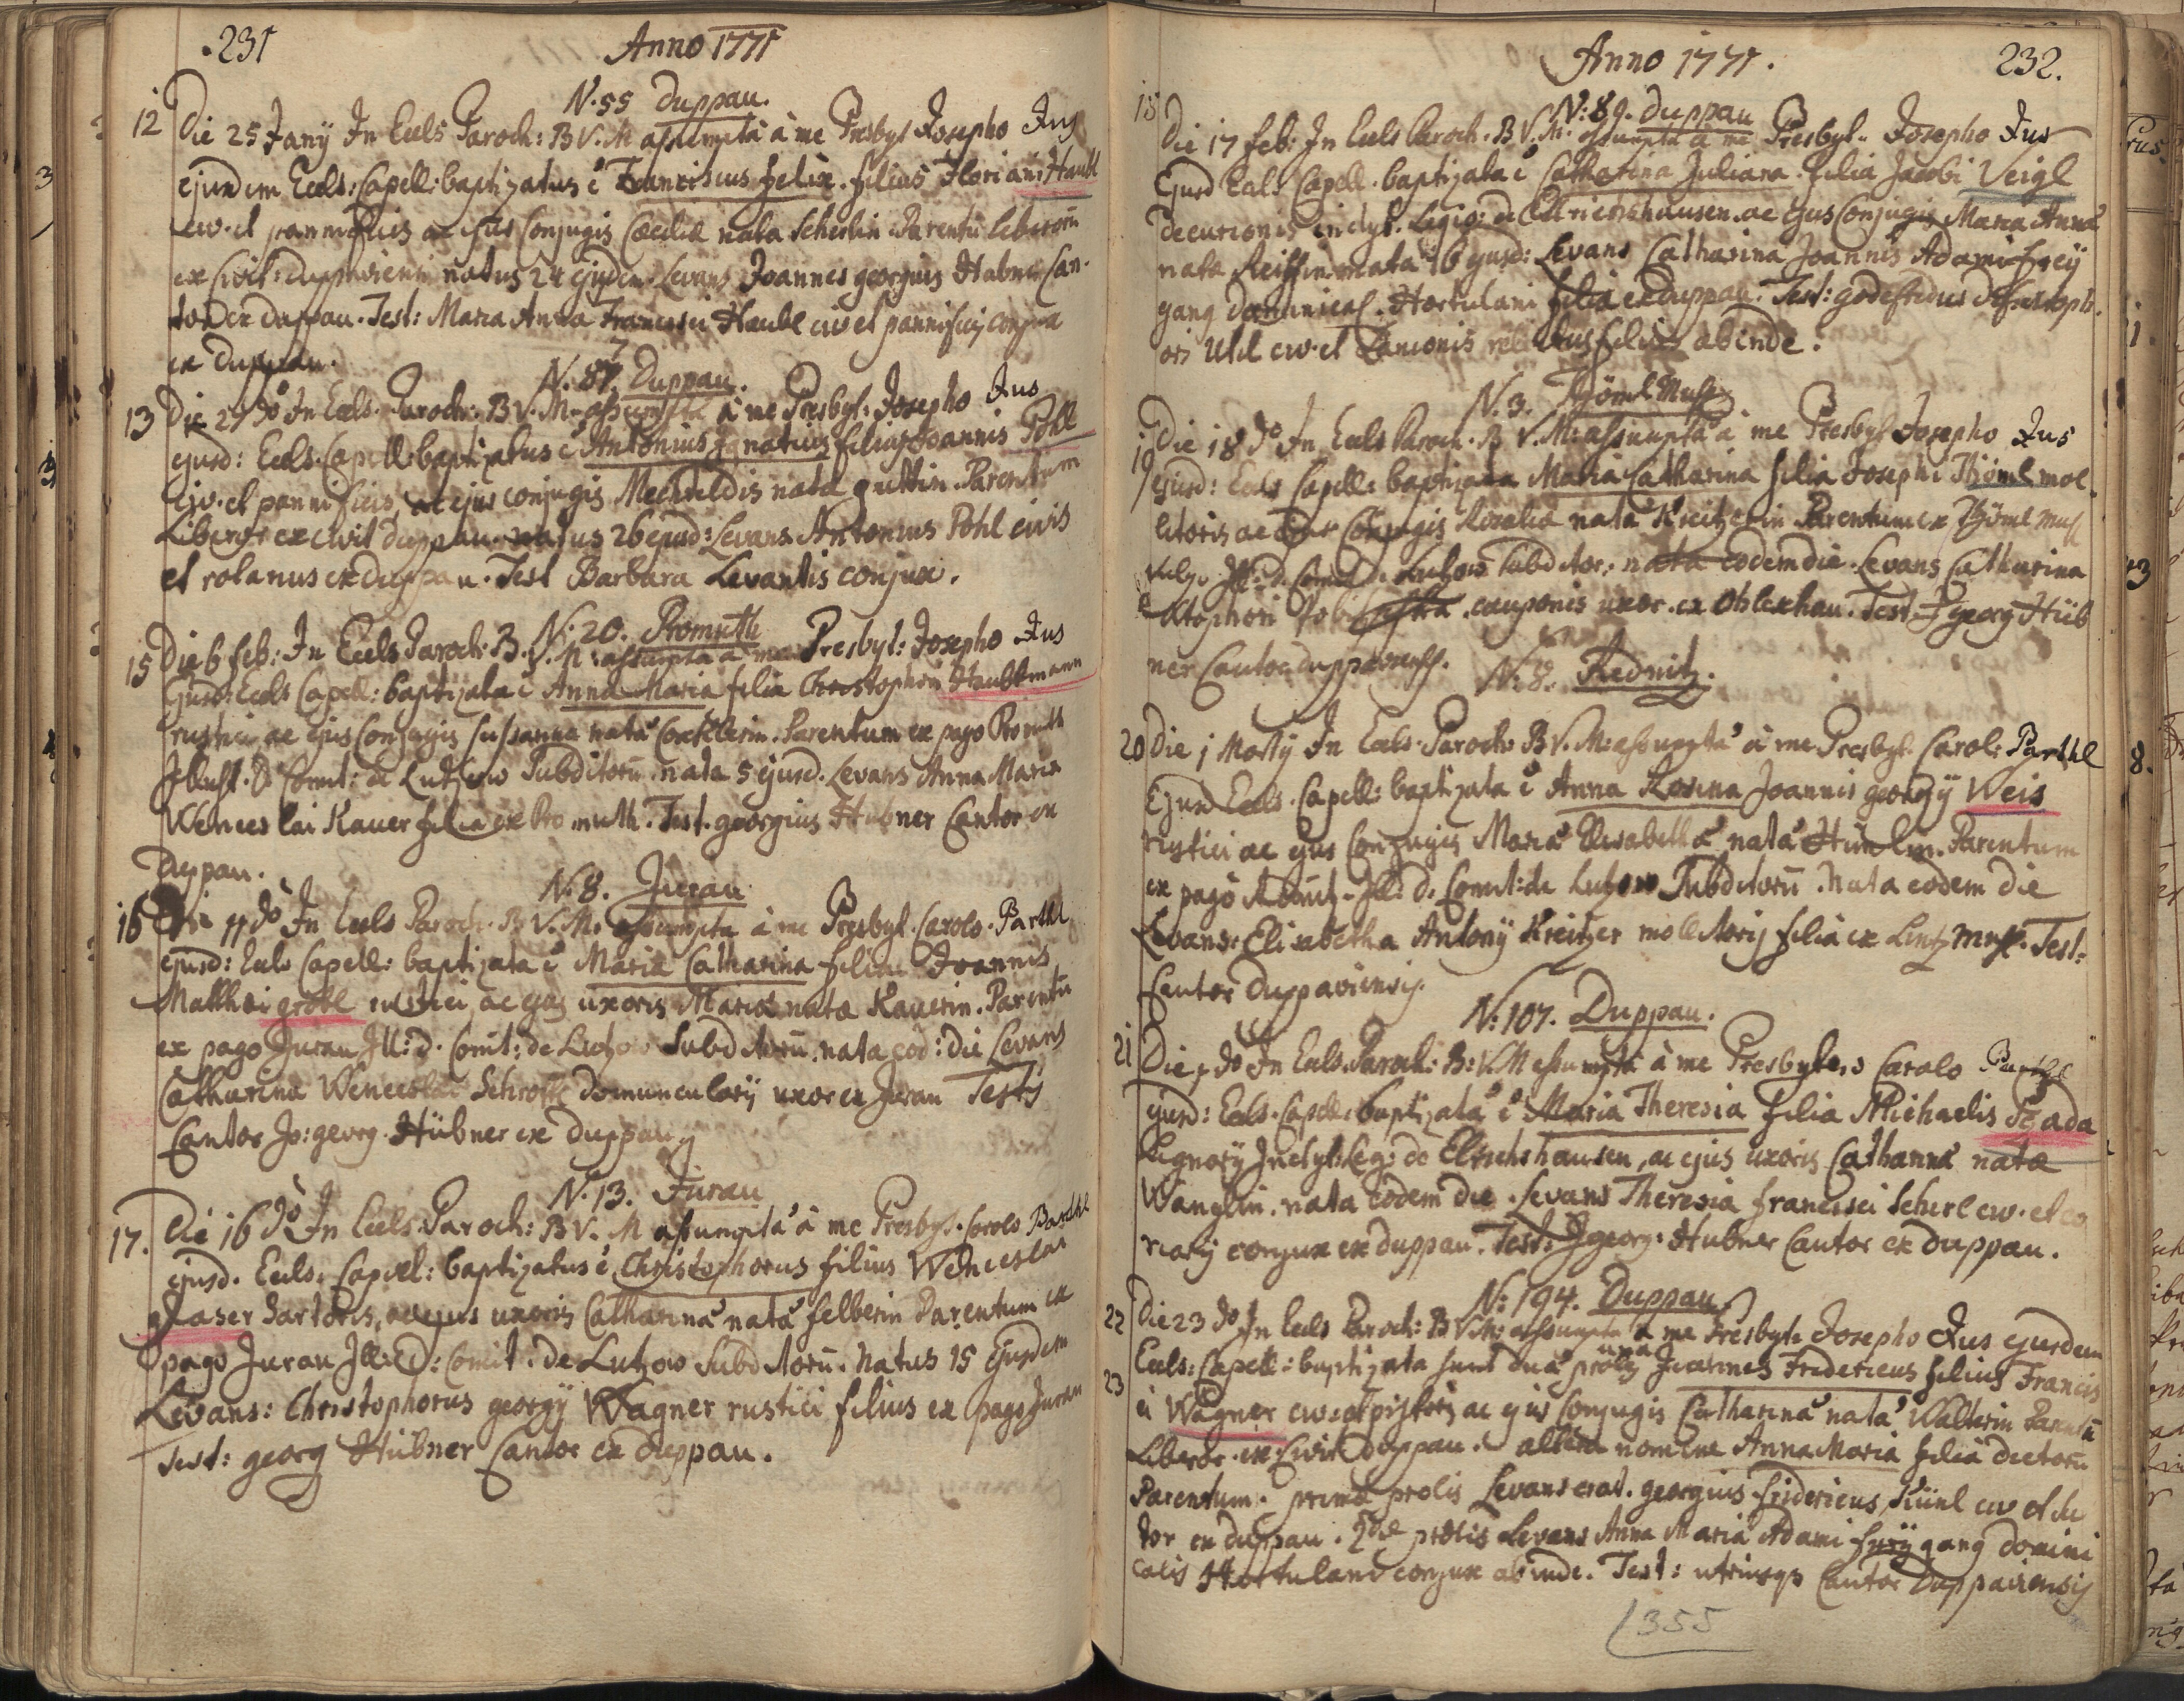 231
Anno 1771
N. 55 Duppau.
12 Die 25 Jany In Eccls Paroch: B V. M assumptâ â me Presbyt Josepho Jus
ejusdem Eccls: Capell: baptizatus ē Franciscus Felix. filius Floriani Haubl
civ. et pannificis ac ejus Conjugis Cæciliæ nata Scherlin Parentū liberorū
ex Civit: natus 24 ejusdem Levans Joannes georgius Hubner Can-
tor ex duppau. Test: Maria Anna Francisci Haubl civ et pannificij conjux
ex duppau.
N. 87. Duppau.
13 Die 27 do In Eccls. Paroch: B V. M assumptâ â me Presbyt: Josepho Jus
ejusd: Eccls. Capell: baptizatus ē Antonius Ignatius filius Joannis Pohl
civ. et pannificis, ac ejus conjugis Mechteldis nata guttin. Parentum
Liberor ex civit duppau. natus 26 ejusd: Levans Antonius Pohl civis
et rotanus ex duppau. Test Barbara Levantis conjux.
N: 20. Promuth
15 Die 6 feb: In Eccls Paroch: B. V. M: assumpta â me Presbyt: Josepho Jus
Ejusd: Eccls Capell: baptizata ē Anna Maria filia Christophori Haubtmann
rustici, ac ejus Conjugis Susanna nata Parentum ex pago Promuth
Illust. D. Comit: de Lutzow Subditorū. nata 5 ejusd. Levans Anna Maria
Wenceslai Kauer filia ex Promuth. Test. georgius Hubner Cantor ex
Duppau.
N. 8. Jurau
16 Die 11 do In Eccls Paroch. B V. M. assumpta â me Presbyt. Carolo. Parthl
ejusd: Eccls Capell: baptizata ē Maria Catharina filia Joannis
Matthæi grötl rustici, ac ejus uxoris Maria nata Kauerin. Parentū
ex pago Jurau Ill: D. Comit: de Lutzow Subditorū. nata eod: die Levans
Catharina Wenceslai domuncularij uxor ex Jurau Testis
Cantor Jo: georg. Hübner ex Duppau
N. 13. Jurau
17. Die 16 do In Eccls. Paroch: B V. M assumptâ â me Presbyt. Carolo Parthl
ejusd. Eccls. Capel: baptizatus ē Christophorus filius Wenceslai
glaser Sartoris, ac ejus uxoris Catharinâ natâ felberin Parentum ex
pago Jurau Ill: D: Comit. de Lutzow Subditorū. Natus 15 ejusdem
Levans: Christophorus georgÿ Wagner rustici filius ex pago Jurau
Test: georg Hübner Cantor ex duppau.
Anno 1771.
232.
N: 89. Duppau
18 Die 17 feb: In Eccls Paroch. B V. M. assumpta â me Presbyt. Josepho Jus
Ejusd Eccls Capell. baptizata ē Catharina Juliana filia Jacobi Veigl
decurionis inclyt. Legio: de Ellrichshausen. ac ejus Conjugis Maria Anna
nata nata 16 ejusd: Levans Catharina Joannis Adami frey
gang dominical. Hortulani filia ex duppau. Test: godefridus
oris Uhl civ. et Lanionis relictus filius abinde.
N. 3. Thöml Muhl
19 Die 18 do In Eccls Paroch. B V. M: assumptâ â me Presbyt Josepho Jus
ejusd: Eccls Capell: baptizata Maria Catharina filia Josephi Thöml mol-
litoris ac ejus Conjugis Rosalia nata Kreitzerin Parentum ex Thöml Muhl
Subditor: nata eodem die. Levans Catharina
cauponis uxor. ex Ohlexhau. Test. J georg Hüb
ner Cantor duppaviensis.
N: 8. Rednitz.
20 Die 1 Martÿ In Eccls. Paroch: B V. M: assumptâ â me Presbyt. Carol: Parthl
Ejusd Eccls. Capell: baptizata ē Anna Rosina Joannis georgÿ Weis
rustici ac ejus Conjugis Mariâ Elisabethâ natâ Parentum
ex pago Rednitz. Ill: D. Comit: de Lutzow Subditorū. Nata eodem die
Levans: Elisabetha Antonÿ Kreitzer mollitorij filia ex Lintz muhl. Test:
Cantor Duppaviensis.
N: 107. Duppau.
21 Die 7 do In Eccls. Paroch: B: V. M assumptâ â me Presbytero Carolo Parthl
ejusd: Eccls. Capell: baptizata ē Maria Theresia filia Michaelis Szada
Inclyt: Leg: de Ellrichshausen, ac ejus uxoris Catharina nata
Wanglin. nata eodem die. Levans Theresia francisci Scherl civ. et co
riarij conjux ex duppau. Test: J georg: Hubner Cantor ex duppau.
N: 194. Duppau
22 Die 23 do In Eccls Paroch: B V M: assumpta â me Presbyt: Josepho Jus ejusdem
Eccls: Capell: baptizata sunt duâ proles una Joannes Fridericus filius Francis
23 ci Wagner civ: et pistoris ac ejus Conjugis Catharinâ natâ Walterin Parentū
Liberor. ex Civit duppau. altera nomine Anna Maria filia dictorū
Parentum. primâ prolis Levans erat. georgius Fridericus Künl civ et su
tor ex duppau. 2dæ prolis Levans Anna Maria Adami freygang domini
calis Hortulani conjux abinde. Test: utriusqs Cantor Duppaviensis
355